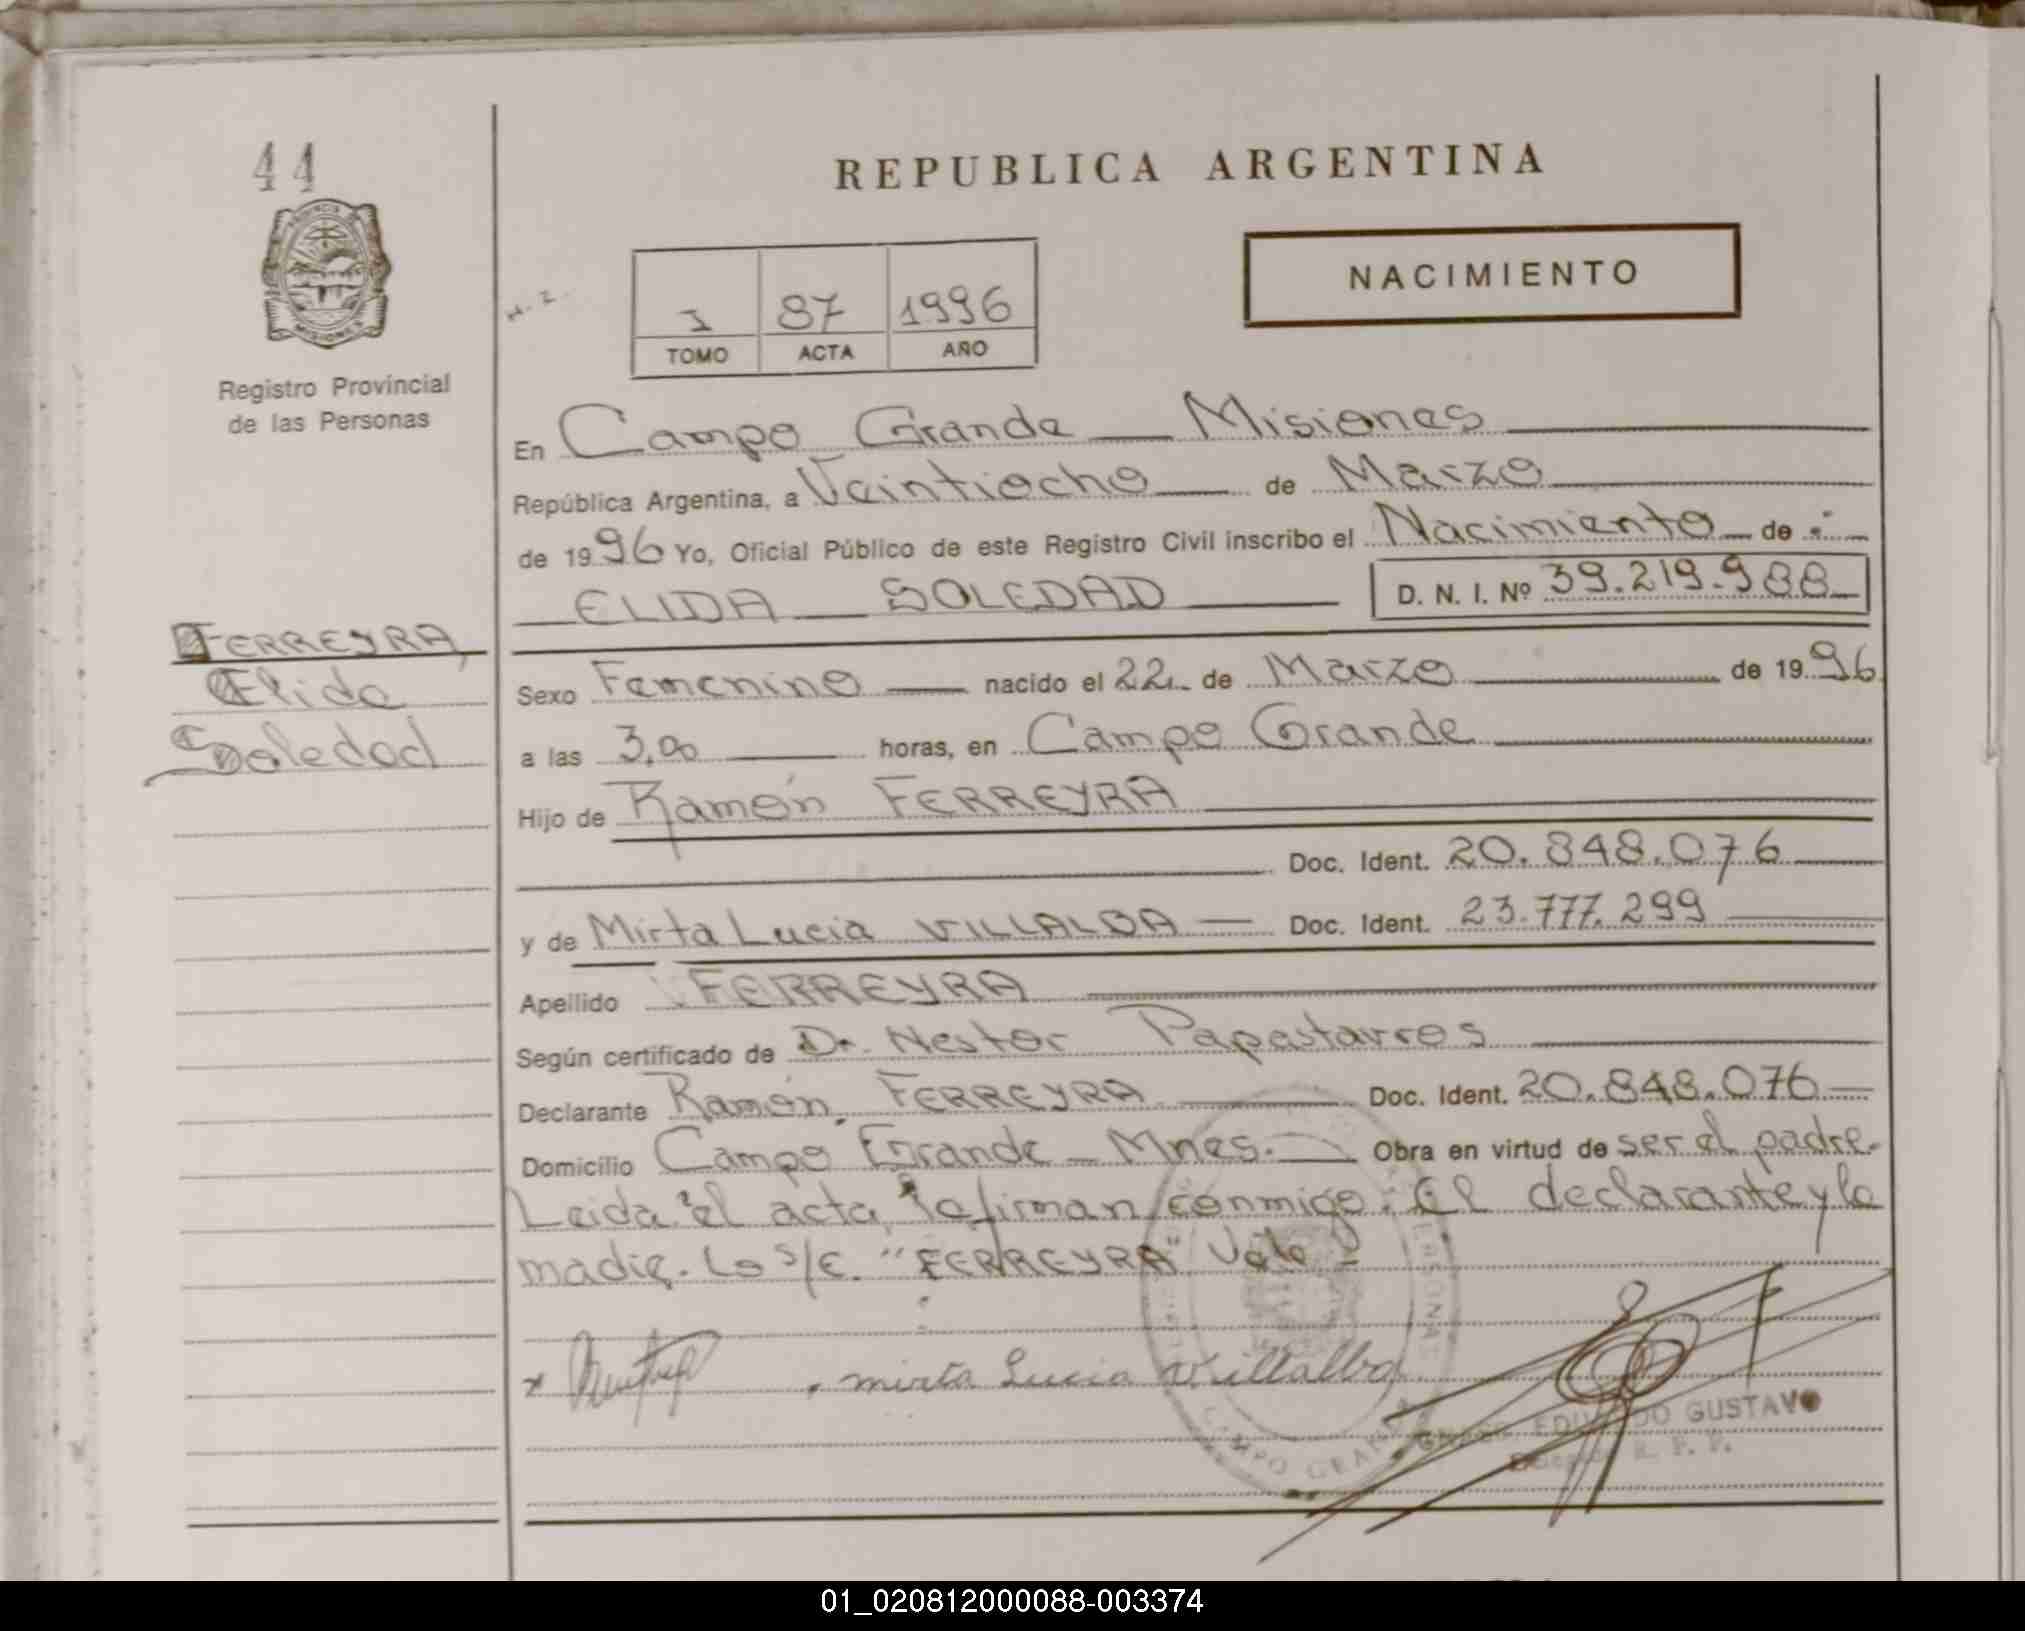 44
PROVINCIA DE
MISIONES
Registro Provincial
de las Personas
FERREYRA,
Elida
Soledad
REPUBLICA ARGENTINA
NACIMIENTO
I 87 1996
TOMO ACTA AÑO
En Campo Grande Misiones
República Argentina, a Veintiocho de Marzo
de 1996 Yo, Oficial Público de este Registro Civil inscribo el Nacimiento de
ELIDA SOLEDAD D. N. I. Nº 39.219.988
Sexo Femenino nacido el 22 de Marzo de 1996
a las 3,00 horas, en Campo Grande
Hijo de Ramón FERREYRA
Doc. Ident. 20.848.076
y de Mirta Lucia VILLALBA Doc. Ident. 23.777.299
Apellido FERREYRA
Según certificado de Dr. Nestor Papastavros
Declarante Ramón FERREYRA Doc. Ident. 20.848.076
Domicilio Campo Grande - Mnes. Obra en virtud de ser el padre.
Leida el acta, la firman conmigo: El declarante y la
madre. Lo s/E. "FERREYRA" Vale
mirta Lucia Villalba
CAMPO GRANDE
EDUARDO GUSTAVO
01_020812000088-003374